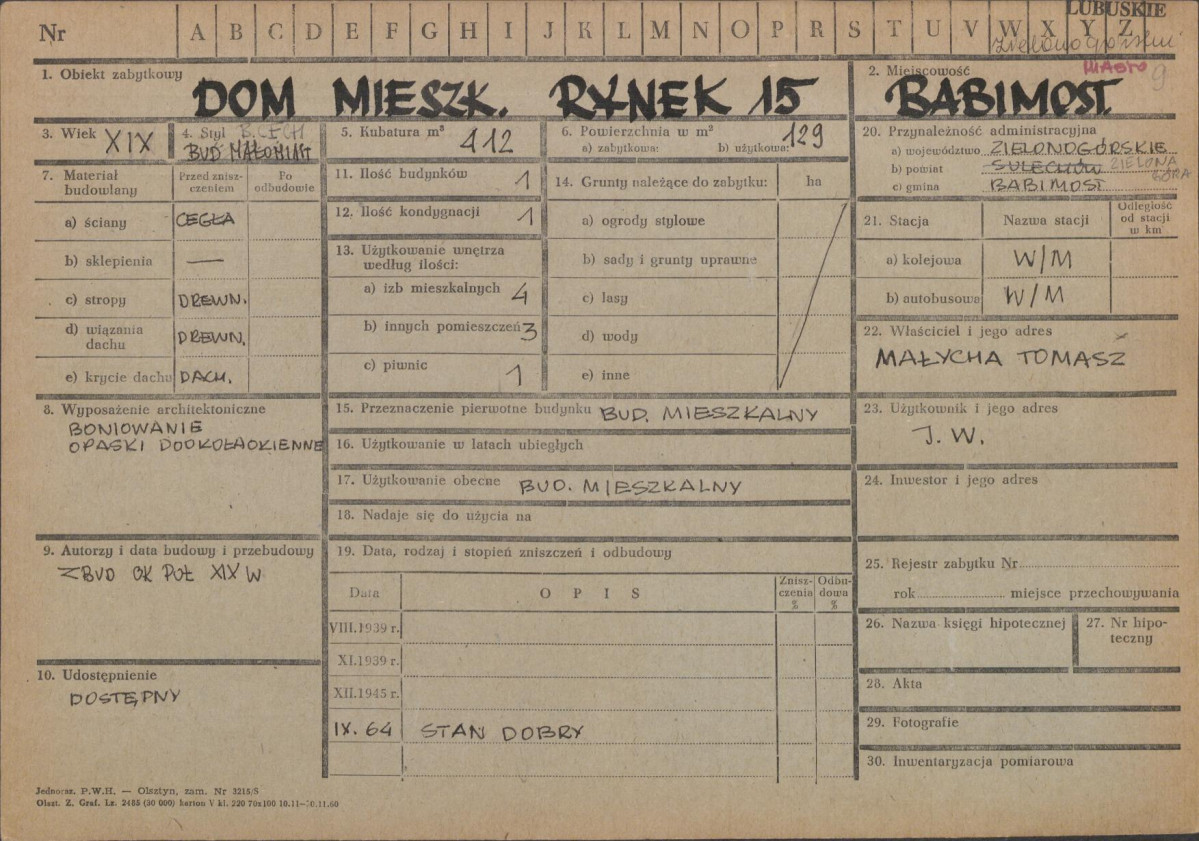 LUBUSKIE
Nr A B C D E F G H I J K L M N O P R S T U V W X Y Z
MIASTO 9
1. Obiekt zabytkowy
DOM MIESZK. RYNEK 15
2. Miejscowość
BABIMOST.
3. Wiek XIX
4. Styl B. CECH
BUD. MAŁOMIAST
5. Kubatura m³ 412
6. Powierzchnia w m²
a) zabytkowa: b) użytkowa: 129
7. Materiał budowlany
Przed zniszczeniem
Po odbudowie
a) ściany CEGŁA
b) sklepienia —
c) stropy DREWN.
d) wiązania dachu DREWN.
e) krycie dachu DACH.
8. Wyposażenie architektoniczne
BONIOWANIE
OPASKI DOOKOŁAOKIENNE
9. Autorzy i data budowy i przebudowy
ZBUD OK POŁ XIX W
10. Udostępnienie
DOSTĘPNY
11. Ilość budynków 1
12. Ilość kondygnacji 1
13. Użytkowanie wnętrza
według ilości:
a) izb mieszkalnych 4
b) innych pomieszczeń 3
c) piwnic 1
14. Grunty należące do zabytku: ha
a) ogrody stylowe
b) sady i grunty uprawne
c) lasy
d) wody
e) inne
15. Przeznaczenie pierwotne budynku BUD. MIESZKALNY
16. Użytkowanie w latach ubiegłych
17. Użytkowanie obecne BUD. MIESZKALNY
18. Nadaje się do użycia na
19. Data, rodzaj i stopień zniszczeń i odbudowy
Data OPIS Zniszczenia % Odbudowa %
VIII.1939 r.
XI.1939 r.
XII.1945 r.
IX. 64 STAN DOBRY
20. Przynależność administracyjna
a) województwo ZIELONOGÓRSKIE
b) powiat SULECHÓW ZIELONA GÓRA
c) gmina BABIMOST
21. Stacja Nazwa stacji Odległość od stacji w km
a) kolejowa W/M
b) autobusowa W/M
22. Właściciel i jego adres
MAŁYCHA TOMASZ
23. Użytkownik i jego adres
J. W.
24. Inwestor i jego adres
25. Rejestr zabytku Nr
rok miejsce przechowywania
26. Nazwa księgi hipotecznej
27. Nr hipoteczny
28. Akta
29. Fotografie
30. Inwentaryzacja pomiarowa
Jednoraz. P.W.H. — Olsztyn, zam. Nr 3215/S
Olszt. Z. Graf. Lz. 2485 (30 000) karton V kl. 220 70x100 10.11—30.11.60